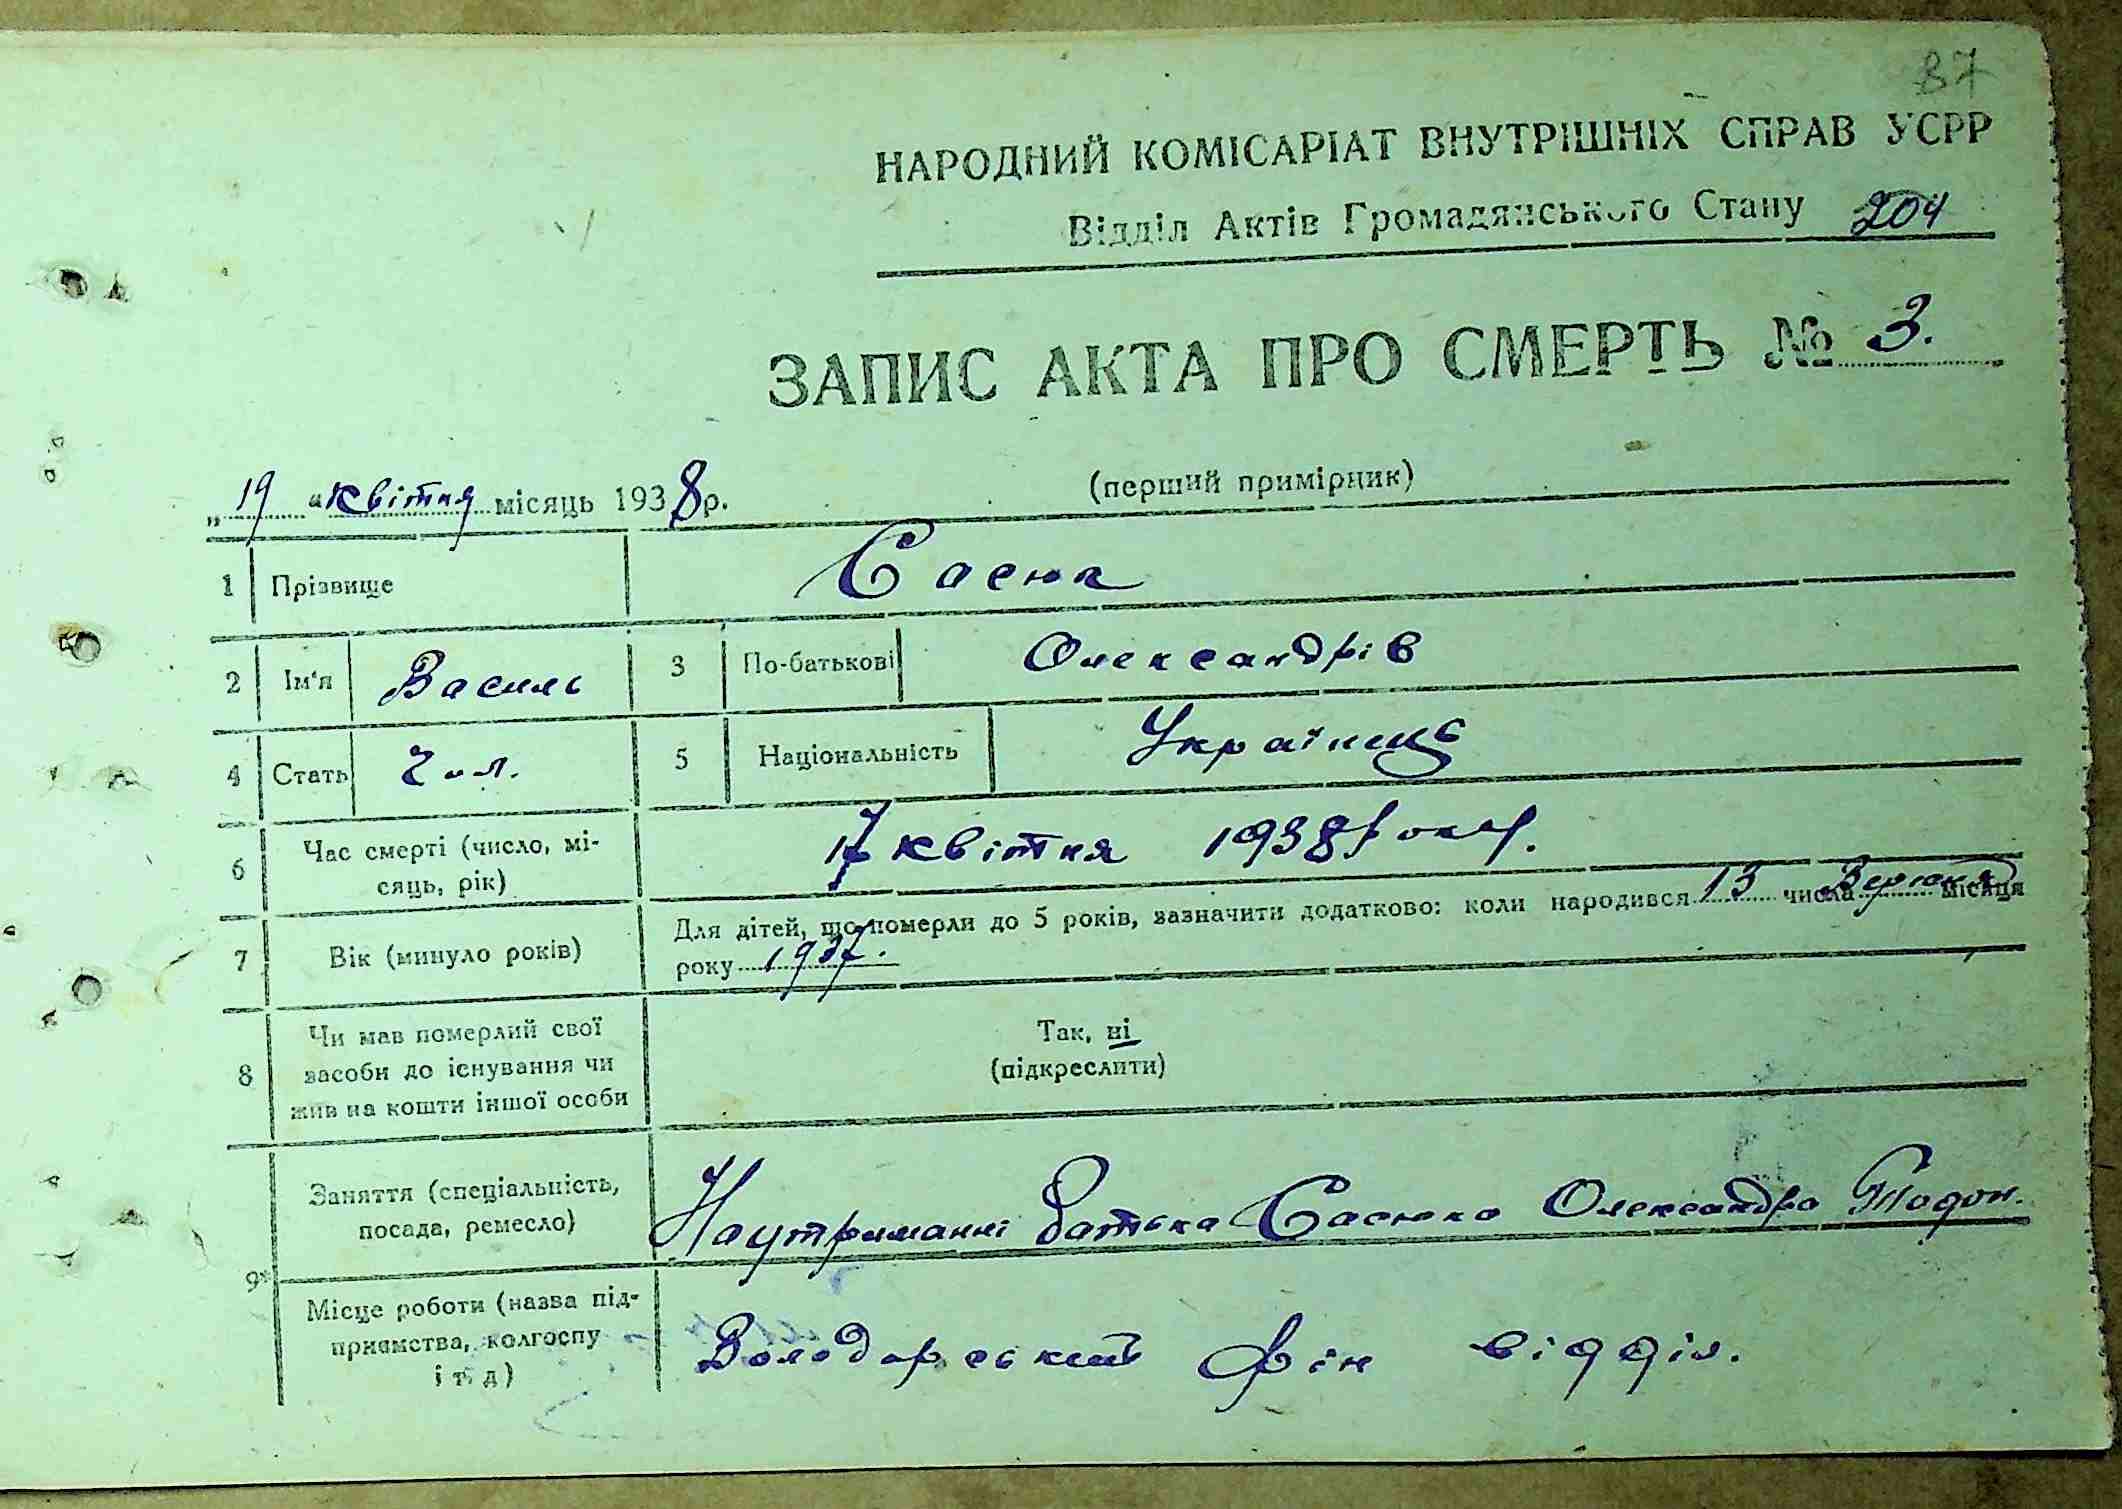 87
НАРОДНИЙ КОМІСАРІАТ ВНУТРІШНІХ СПРАВ УСРР
Відділ Актів Громадянського Стану 204
ЗАПИС АКТА ПРО СМЕРТЬ № 3.
„19" квітня місяць 1938 р.
(перший примірник)
1 Прізвище Сасюк
2 Ім'я Василь 3 По-батькові Олександрів
4 Стать Чол. 5 Національність Українець
6 Час смерті (число, мі-
сяць, рік) 17 квітня 1938 року.
7 Вік (минуло років) Для дітей, що померли до 5 років, зазначити додатково: коли народився 13 числа Вересня місяця
року 1937.
8 Чи мав померлий свої
засоби до існування чи
жив на кошти іншої особи
Так, ні
(підкреслити)
9* Заняття (спеціальність,
посада, ремесло) Наутриманні батька Сасюка Олександра Тодон.
Місце роботи (назва під-
приємства, колгоспу
і т. д) Володарський фін відділ.